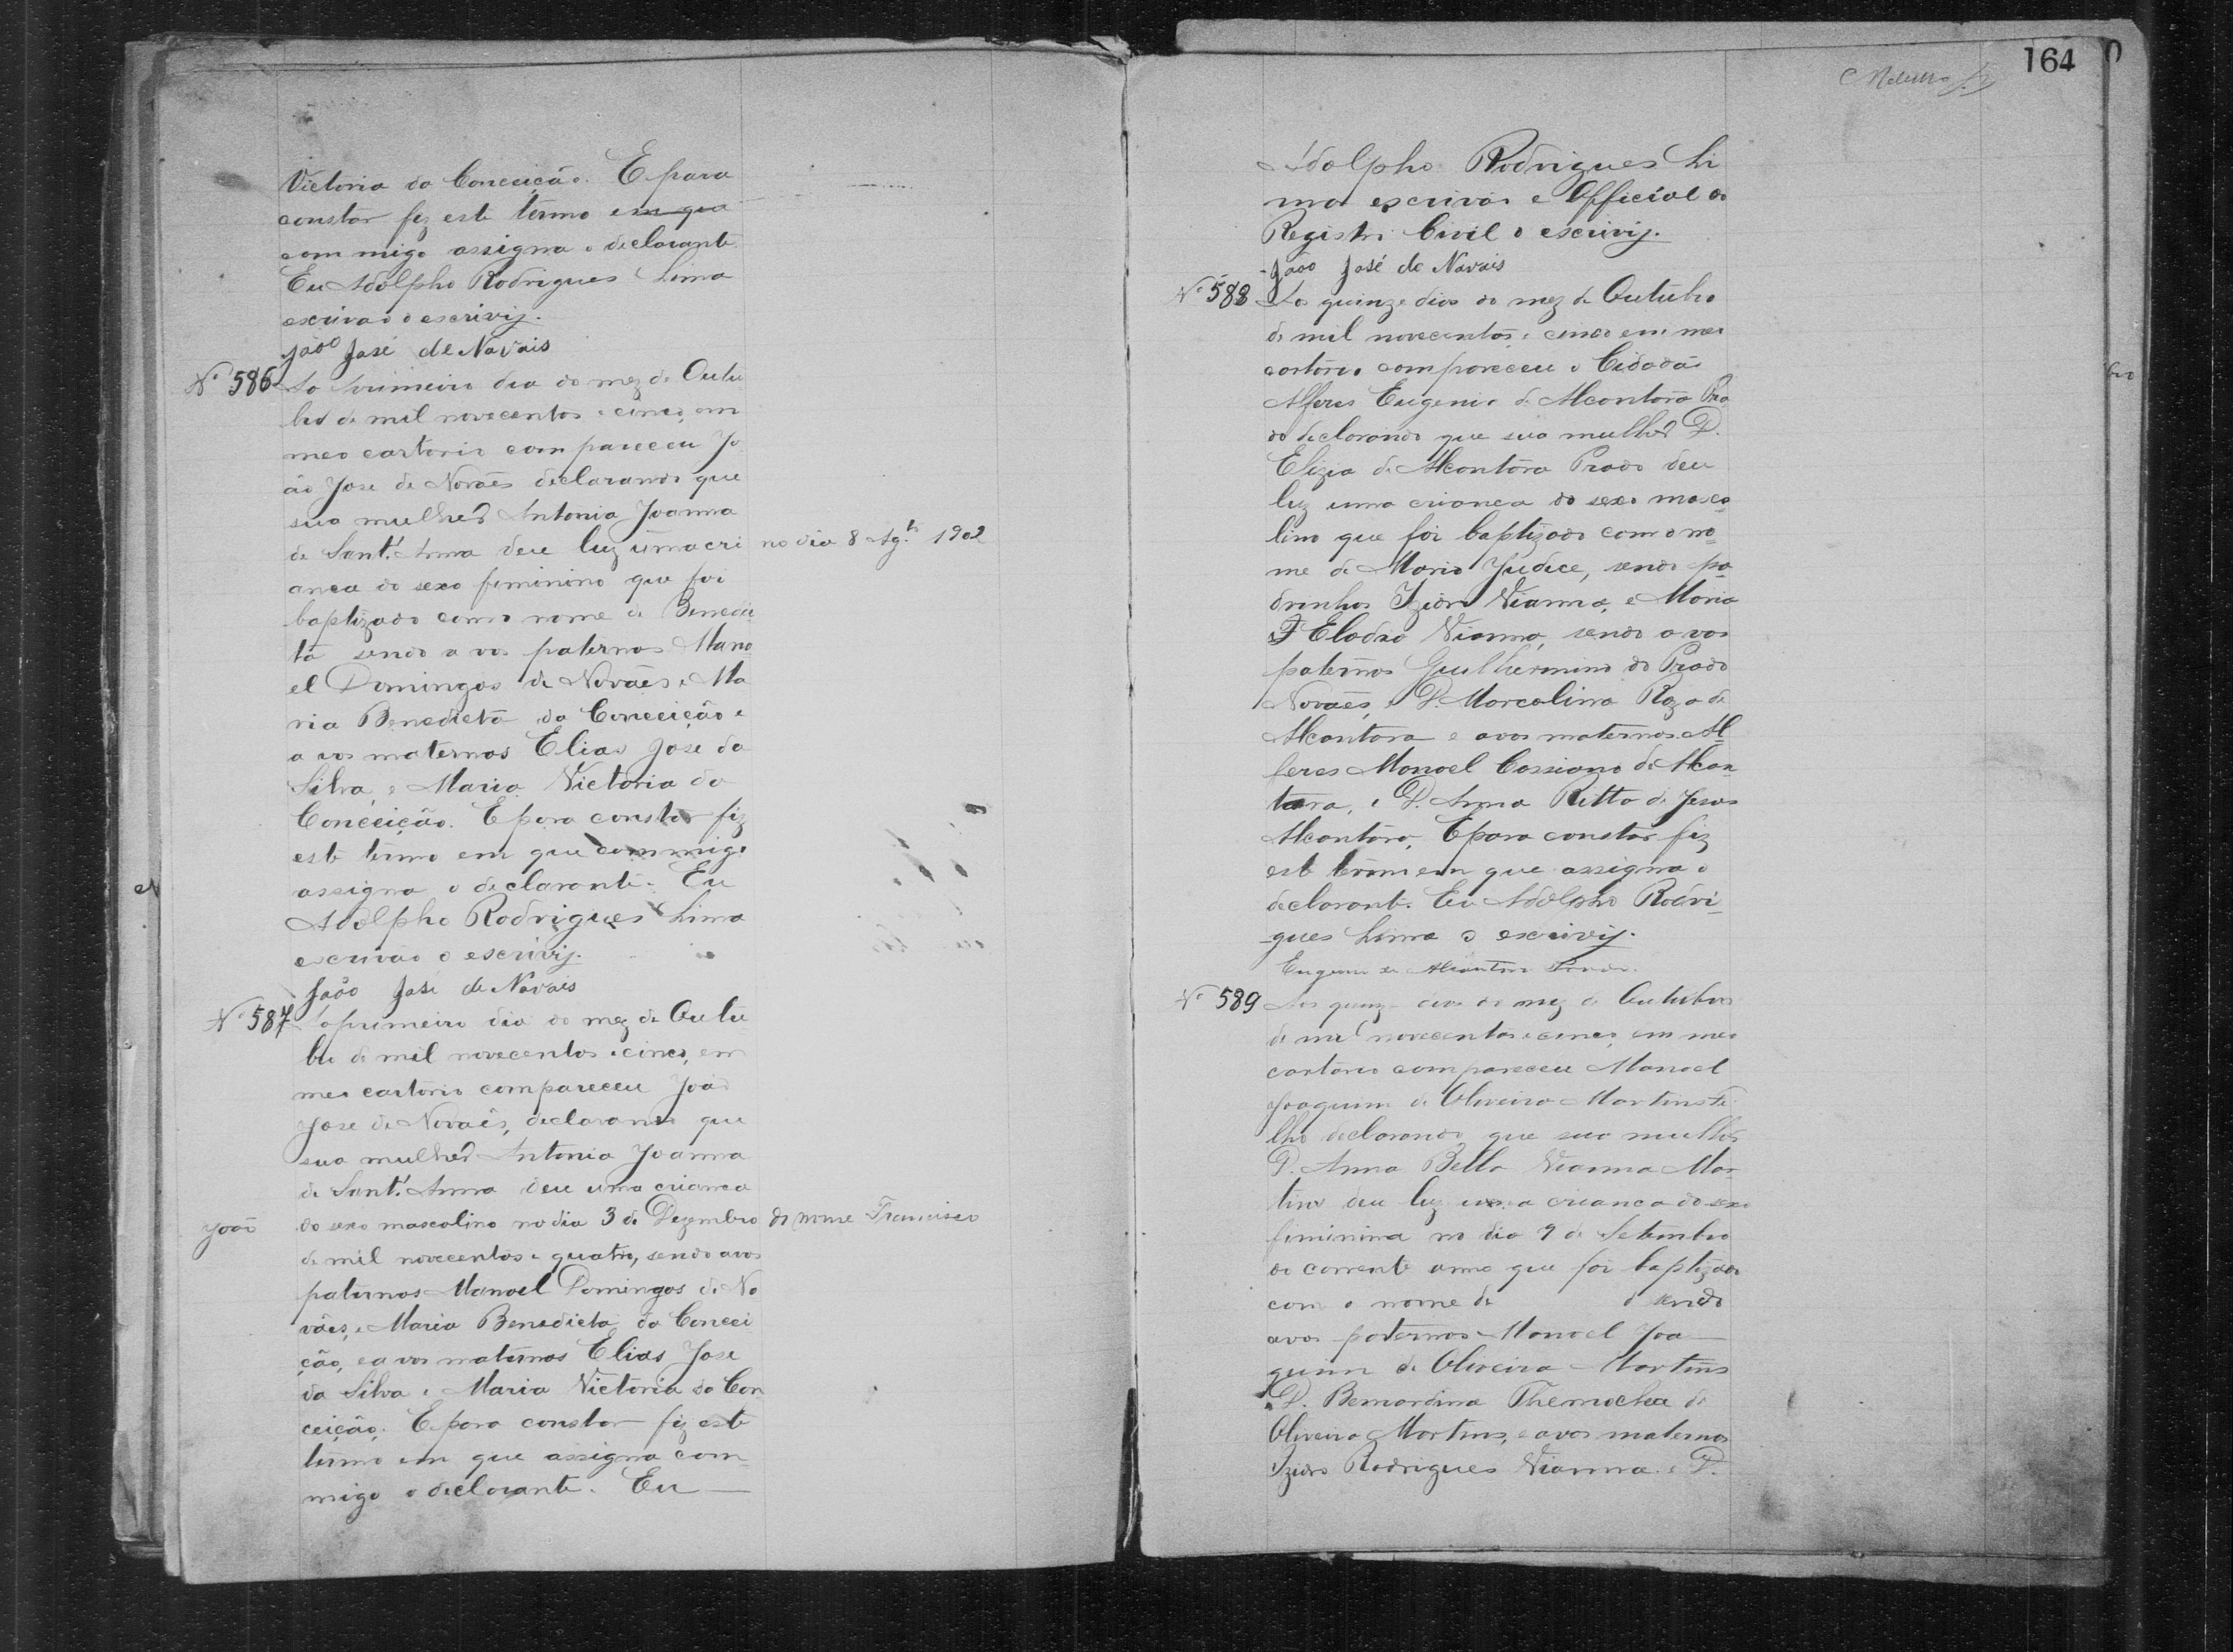 Victoria da Conceição. E para
constar fiz este têrmo em que
commigo assigna o declarante.
Eu Adolpho Rodrigues Lima
escrivão o escrivij.
João José de Navais
Nº 586 Ao primeiro dia do mez de Outu
bro de mil novecentos e cinco, em
meo cartorio compareceu Jo
ão Jose de Novaês declarando que
sua mulher Antonia Joanna
de Sant'Anna deu luz uma cri no dia 8 Ag.to 1902
anca do sexo feminino que foi
baptizado com o nome de Benedic
ta sendo avos paternos Mano
el Domingos de Novaês e Ma
ria Benedicta da Conceição e
avos maternos Elias Jose da
Silva e Maria Victoria da
Conceição. E para constar fiz
este termo em que commigo
assigna o declarante. Eu
Adolpho Rodrigues Lima
escrivão o escrivij.
João José de Navais
Nº 587 Ao primeiro dia do mez de Outu
bro de mil novecentos e cinco, em
meo cartorio compareceu João
Jose de Novaês, declarando que
sua mulher Antonia Joanna
de Sant'Anna deu uma crianca
João do sexo mascolino no dia 3 de Dezembro de nome Francisco
de mil novecentos e quatro, sendo avos
paternos Manoel Domingos de No
vaês, e Maria Benedicta da Concei
ção, e avos maternos Elias Jose
da Silva e Maria Victoria da Con
ceição. E para constar fiz este
termo em que assigna com
migo o declarante. Eu
164
Adolpho Rodrigues Li
ma escrivão e Official do
Registro Civil o escrivij.
João José de Navais
Nº 588 Aos quinze dias do mez de Outubro
de mil novecentos e cinco em meo
cartorio compareceu o Cidadão
Alferes Eugenio de Alcantara Pra
do declarando que sua mulher D.
Elizia de Alcantara Prado deu
luz uma crianca do sexo masco
lino que foi baptizado com o no
me de Mario Judice, sendo pa
drinhos Izidro Vianna, e Maria
F Elodia Vianna, sendo avos
paternos Guilhermino do Prado
Novaês, e D. Marcolina Roza de
Alcantara e avos maternos Al
feres Manoel Cassiano de Alcan
tara, e D. Anna Ritta de Jesus
Alcantara, E para constar fiz
este termo em que assigna o
declarante. Eu Adolpho Rodri
gues Lima o escrivij.
Eugenio de Alcantara Prado.
Nº 589 Aos quinze dias do mez de Outubro
de mil novecentos e cinco, em meo
cartorio compareceu Manoel
Joaquim de Oliveira Martins Fi
lho declarando que sua mulher
D. Anna Bella Vianna Mar
tins deu luz uma crianca do sexo
feminina no dia 9 de Setembro
do corrente anno que foi baptizado
com o nome de sendo
avos paternos Manoel Joa
quim de Oliveira Martins
e D. Bernardina Themochea de
Oliveira Martins, e avos maternos
Izidro Rodrigues Vianna e D.